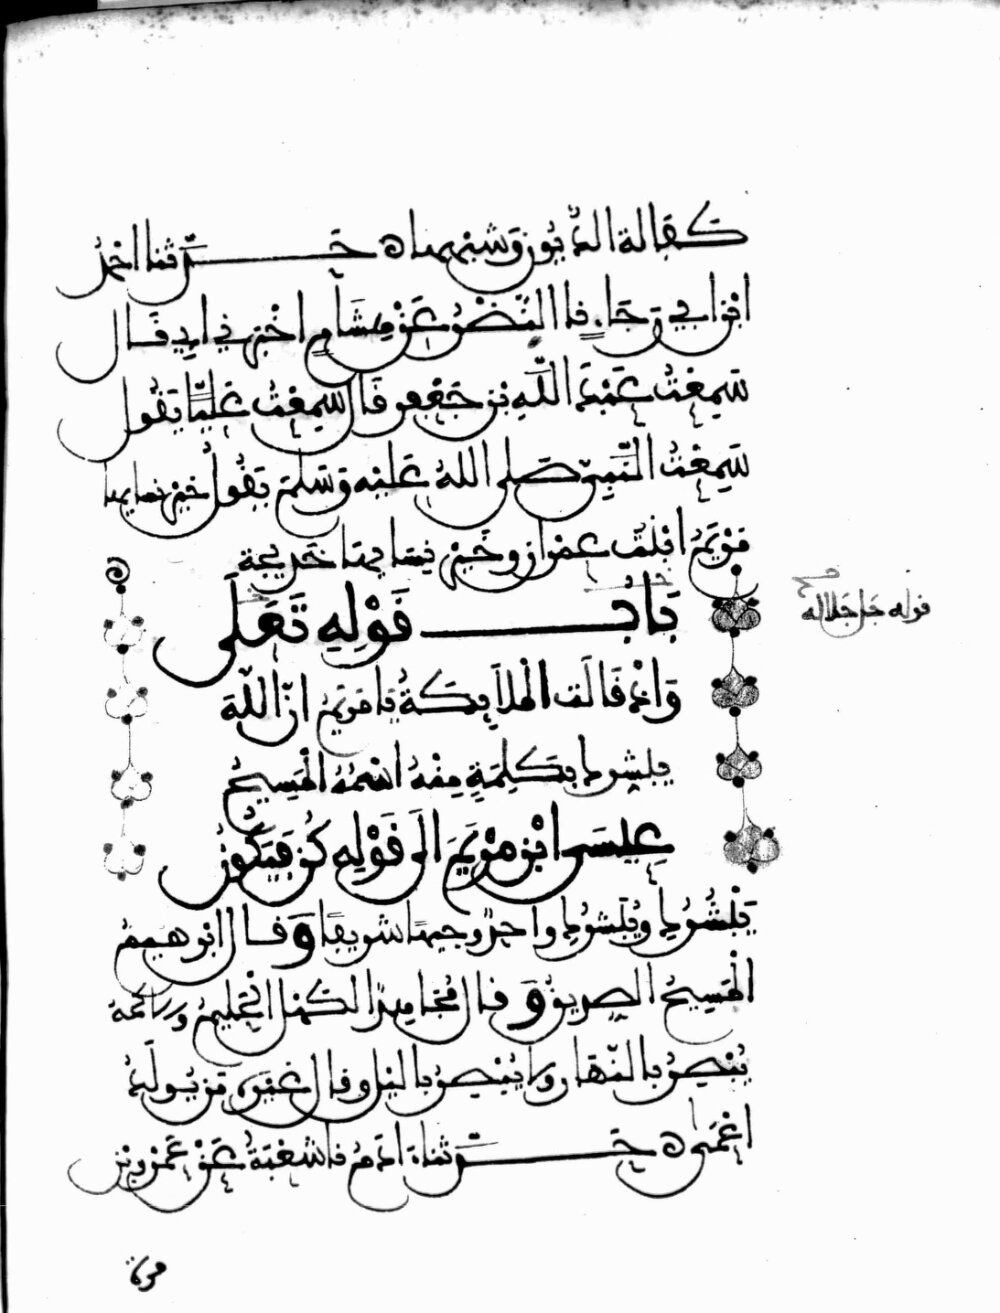 كفالة الديون وشبهها ه حدثنا احمد
ابن ابي رجاء فا النضر عن هشام اخبرني ابي قال
سمعت عبد الله بن جعفر قال سمعت عليا يقول
سمعت النبي صلى الله عليه وسلم يقول خير نسايها
مريم ابنت عمران وخير نسايها خديجة
باب قوله تعلى
قوله جل جلاله
واذ قالت الملايكة يا مريم ان الله
يبشرك بكلمة منه اسمه المسيح
عيسى ابن مريم الى قوله كن فيكون
يبشرك ويبشرك واحد وجيها شريفا وقال ابرهيم
المسيح الصديق وقال مجاهد الكهل الحليم والاكمه
يبصر بالنهار ولا يبصر بالليل وقال غيره من يولد
اعمى ه حدثنا ادم فا شعبة عن عمرو بن